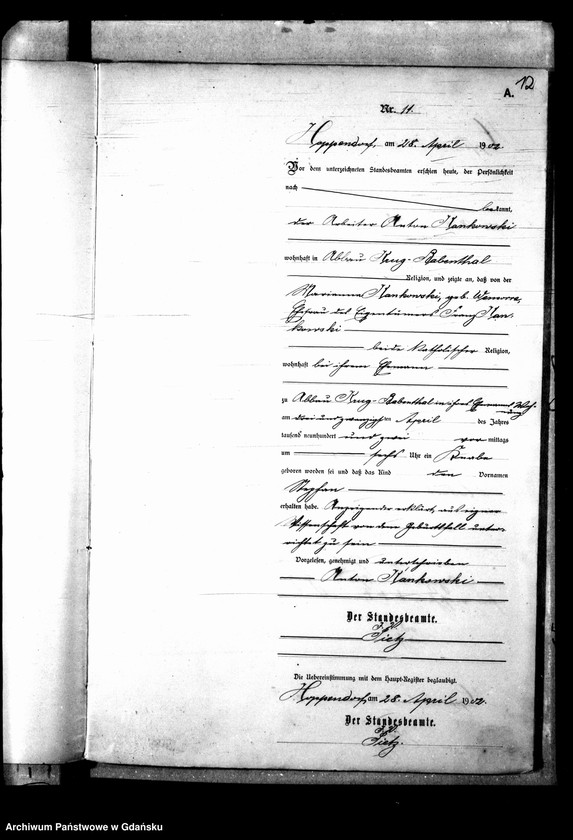 A.
12
Nr. 11.
Hoppendorf, am 28. April 1902.
Vor dem unterzeichneten Standesbeamten erschien heute, der Persönlichkeit
nach
bekannt,
der Arbeiter Anton Kankowski
wohnhaft in Abbau Krug-Babenthal
Religion, und zeigte an, daß von der
Marianna Kankowski, geb. Wenorra,
Ehefrau des Eigentümers Franz Kan-
kowski
beide katholischer Religion,
wohnhaft bei ihrem Ehemann
zu Abbau Krug-Babenthal in ihres Ehemanns Woh-
nung
am drei und zwanzigsten April des Jahres
tausend neunhundert und zwei vor mittags
um sechs Uhr ein Knabe
geboren worden sei und daß das Kind den Vornamen
Stephan
erhalten habe. Anzeigender erklärt, aus eigener
Wissenschaft von dem Geburtsfall unter-
richtet zu sein
Vorgelesen, genehmigt und unterschrieben
Anton Kankowski
Der Standesbeamte.
J. V.
Tietz
Die Uebereinstimmung mit dem Haupt-Register beglaubigt.
Hoppendorf, am 28. April 1902.
Der Standesbeamte.
J. V.
Tietz.
Archiwum Państwowe w Gdańsku